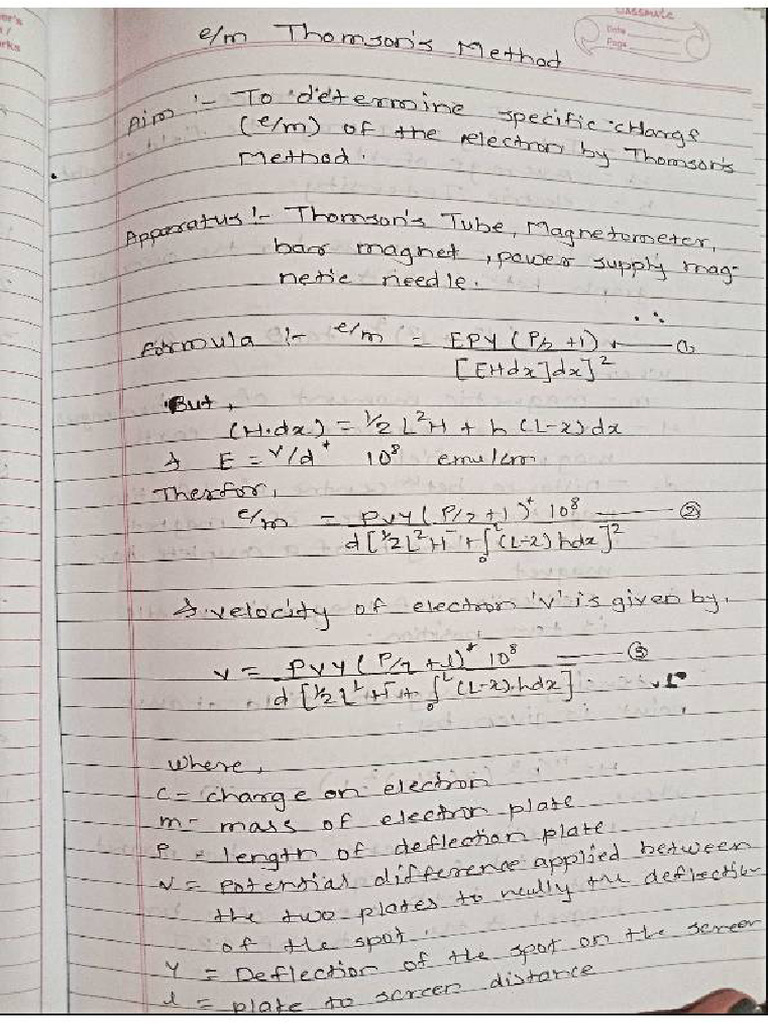 classmate
Date
Page
e/m Thomson's Method
Aim :- To determine specific charge
(e/m) of the electron by Thomson's
Method.
Apparatus :- Thomson's Tube, Magnetometer,
bar magnet, power supply mag-
netic needle.
Formula :- e/m = EPY (P/2 + 1) ①
[EHdx]dx]²
But,
(H.dx.) = 1/2 L²H + h (L-x) dx
& E = V/d * 10⁸ emu/cm
Therfor,
e/m = PVY (P/2 + 1)* 10⁸ ②
d [1/2 L²H + ∫₀ᴸ (L-x) hdx]²
& velocity of electron 'v' is given by.
v = PVY (P/2 + l)* 10⁸ ③
d [1/2 L² H + ∫₀ᴸ (L-x).hdx]
where,
C = charge on electron
m = mass of electron plate
P = length of deflection plate
V = Potential difference applied between
the two plates to nully the deflection
of the spot.
Y = Deflection of the spot on the screen
l = plate to screen distance